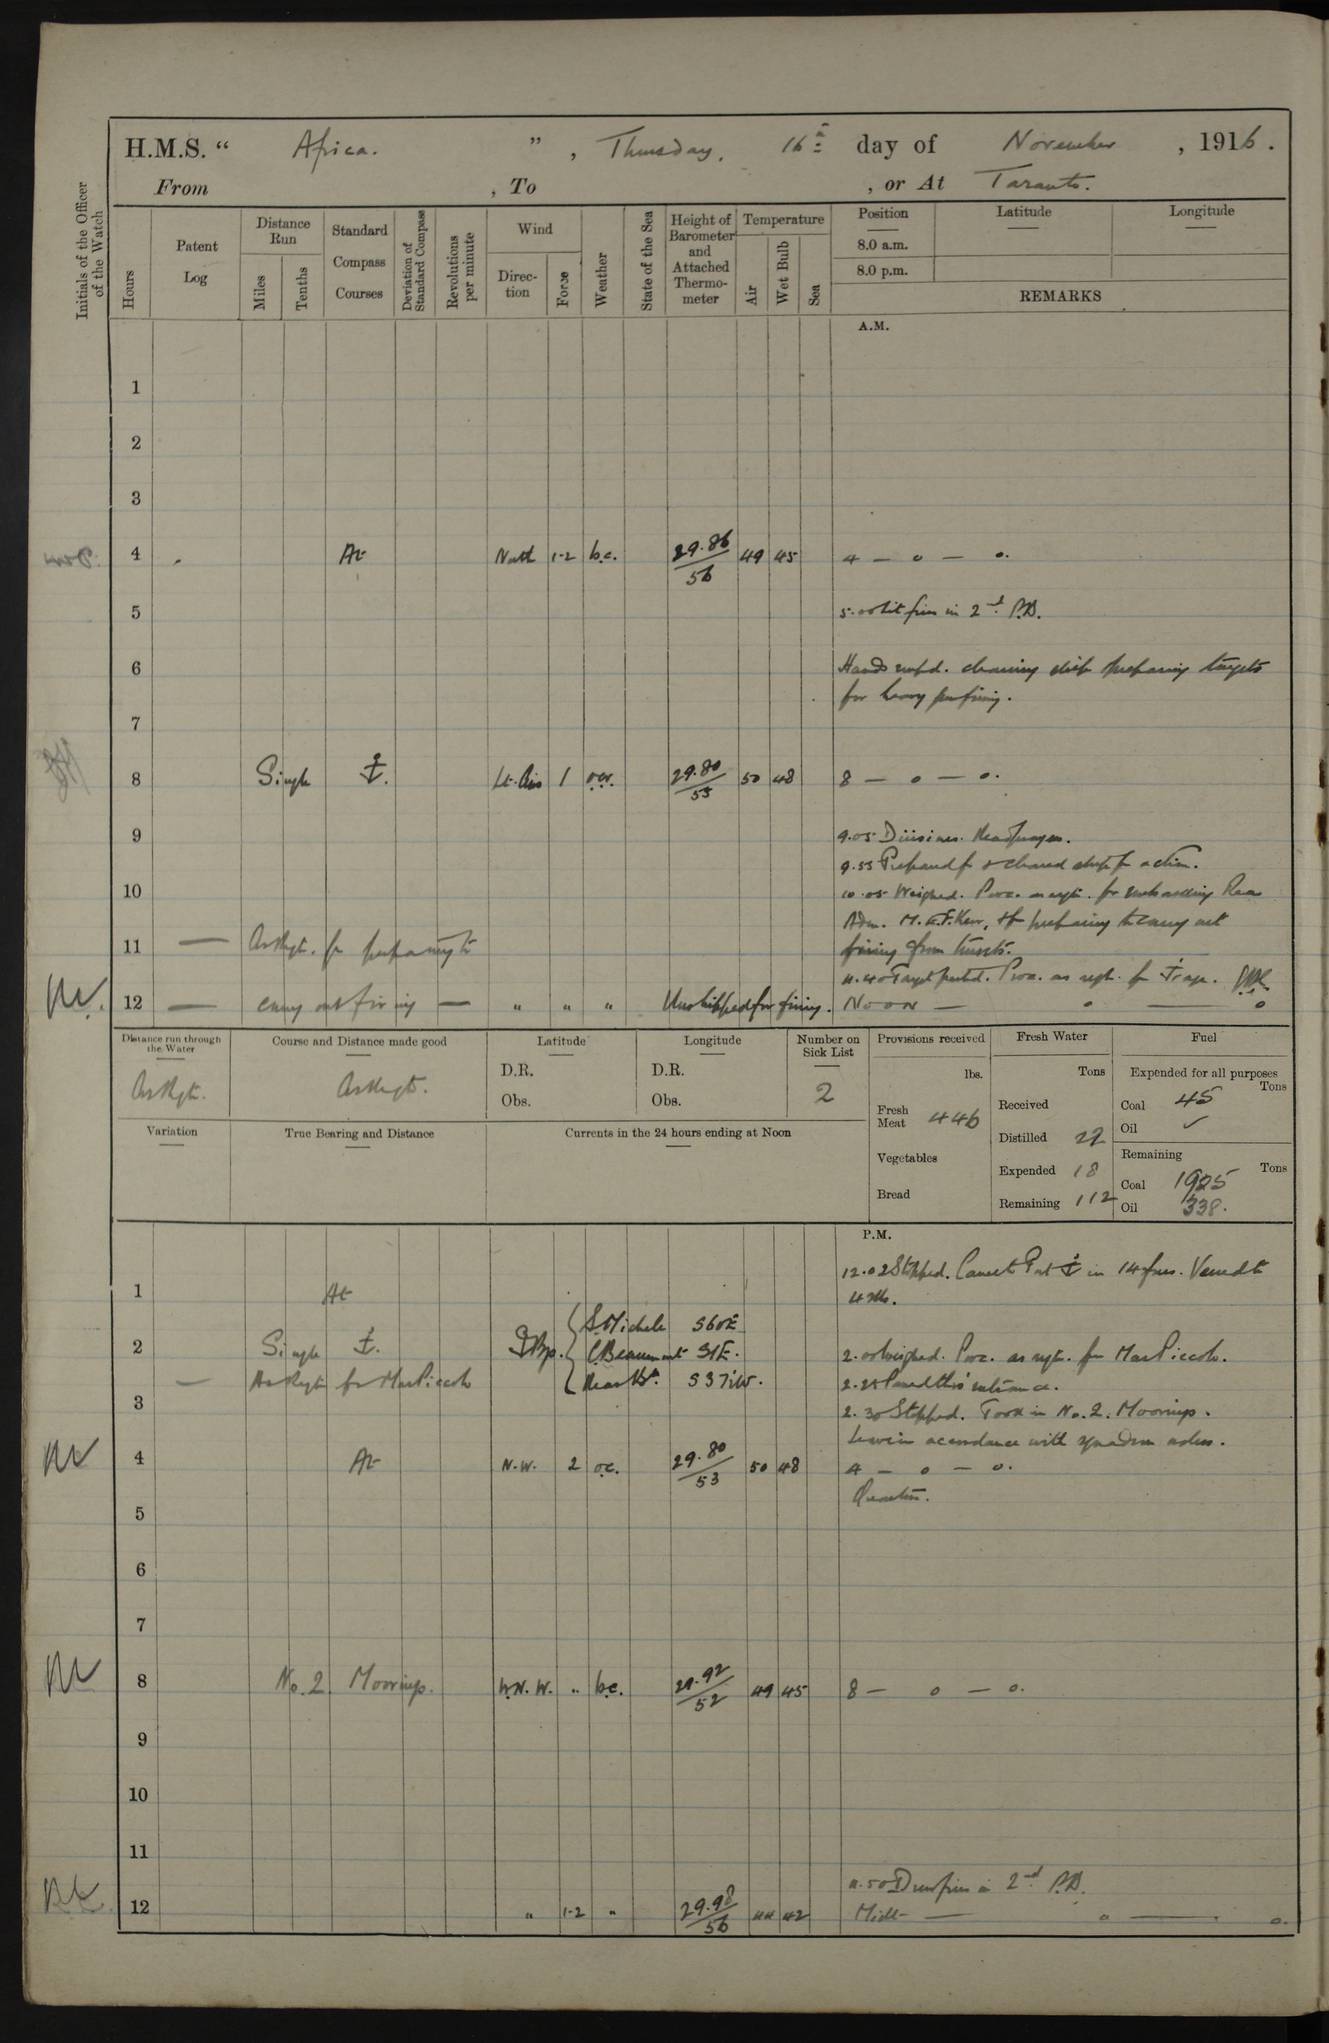 H.M.S. “ Africa. ” , Thursday, 16th day of November , 1916.
From , To , or At Taranto.
Initials of the Officer of the Watch
Hours
Patent Log
Distance Run
Miles
Tenths
Standard Compass Courses
Deviation of Standard Compass
Revolutions per minute
Wind
Direction
Force
Weather
State of the Sea
Height of Barometer and Attached Thermometer
Temperature
Air
Wet Bulb
Sea
Position
Latitude
Longitude
8.0 a.m.
8.0 p.m.
REMARKS
A.M.
1
2
3
4 At North 1-2 b.c. 29.86/56 49 45 4 — o — o.
5 5.00 Lit fires in 2nd B.B.
6 Hands empd. cleaning ship preparing targets
for heavy gun firing.
7
8 Single ⚓. Lt. Airs 1 29.80/55 50 48 8 — o — o.
9 9.05 Divisions. Read prayers.
9.55 Prepared for & cleared ship for action.
10 10.05 Weighed. Proc. as reqte. for embarking Rear
Adm. M.E.F. Kerr, & for preparing to carry out
11 — As Reqt. for preparing to firing from turrets.
11.40 Target parted. Proc. as reqt. for ⚓rage.
12 — carry out firing — " " " Unshipped for firing. Noon — o — o
Distance run through the Water
As Reqt.
Course and Distance made good
As Reqt.
Latitude
D.R.
Obs.
Longitude
D.R.
Obs.
Number on Sick List
2
Variation
True Bearing and Distance
Currents in the 24 hours ending at Noon
Provisions received
lbs.
Fresh Meat 446
Vegetables
Bread
Fresh Water
Tons
Received
Distilled 22
Expended 18
Remaining 112
Fuel
Expended for all purposes
Tons
Coal 45
Oil ✓
Remaining
Tons
Coal 1925
Oil 338.
P.M.
12.02 Stopped. Came to Port ⚓ in 14 fms. Veered to
1 At 4 shs.
S. Michele S60E
2 Single ⚓. ⚓ Bgs. C. Beaumont S1E. 2.00 Weighed. Proc. as reqt. for Mar Piccolo.
— As Reqt for Mar Piccolo S37½W. 2.25 Passed thro' entrance.
3 2.30 Stopped. Took in No. 2. Moorings.
Leave in accordance with squadron orders.
4 At N.W. 2 o.c. 29.80/53 50 48 4 — o — o.
Quarters.
5
6
7
8 No. 2 Moorings. W.N.W. " b.c. 29.92/52 49 45 8 — o — o.
9
10
11
11.50 Drew fires in 2nd B.B.
12 " 1-2 " 29.98/56 44 42 Midt — o — o.